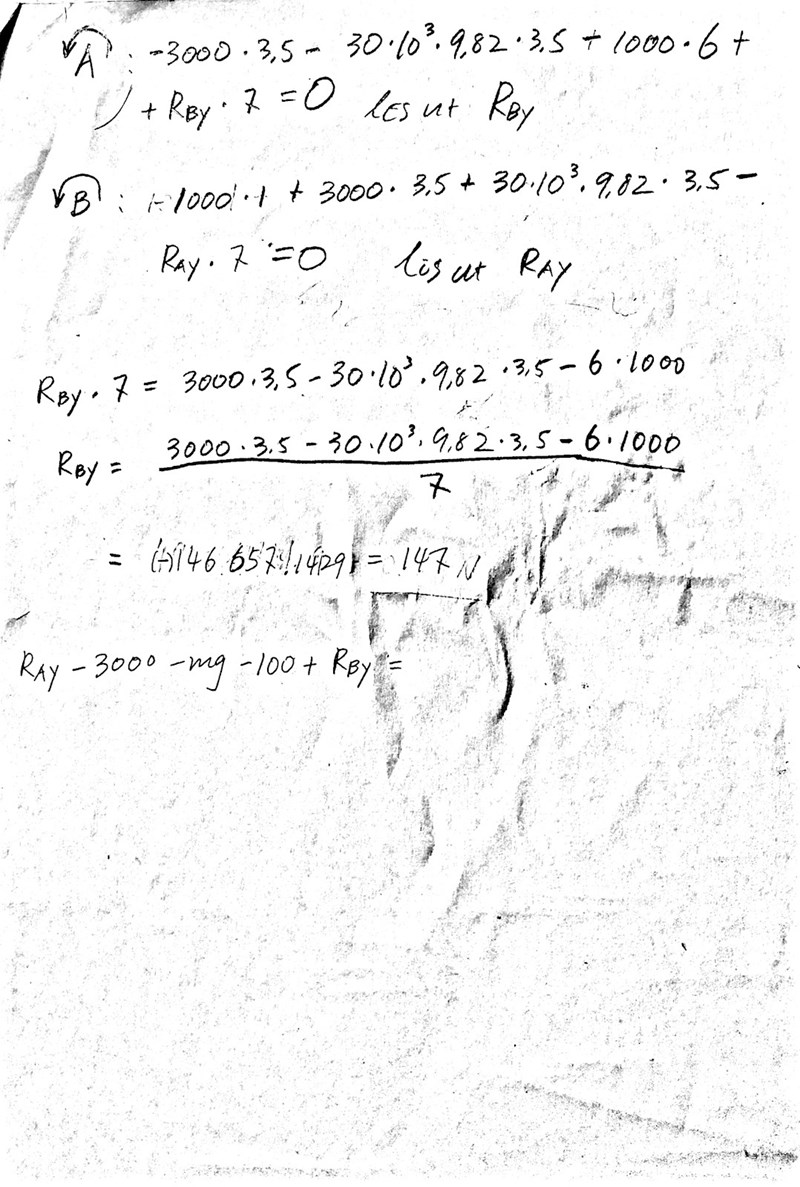 A : -3000 · 3,5 - 30·10³ · 9,82 · 3,5 + 1000 · 6 +
+ RBy · 7 = 0 lös ut RBy
B : -1000 · 1 + 3000 · 3,5 + 30·10³ · 9,82 · 3,5 -
RAY · 7 = 0 lös ut RAY
RBY · 7 = 3000·3,5 - 30·10³ · 9,82 · 3,5 - 6 · 1000
RBY = 3000 · 3,5 - 30·10³ · 9,82 · 3,5 - 6·1000
7
= (-)146 657,1429 = 147 N
RAY - 3000 - mg - 100 + RBY =